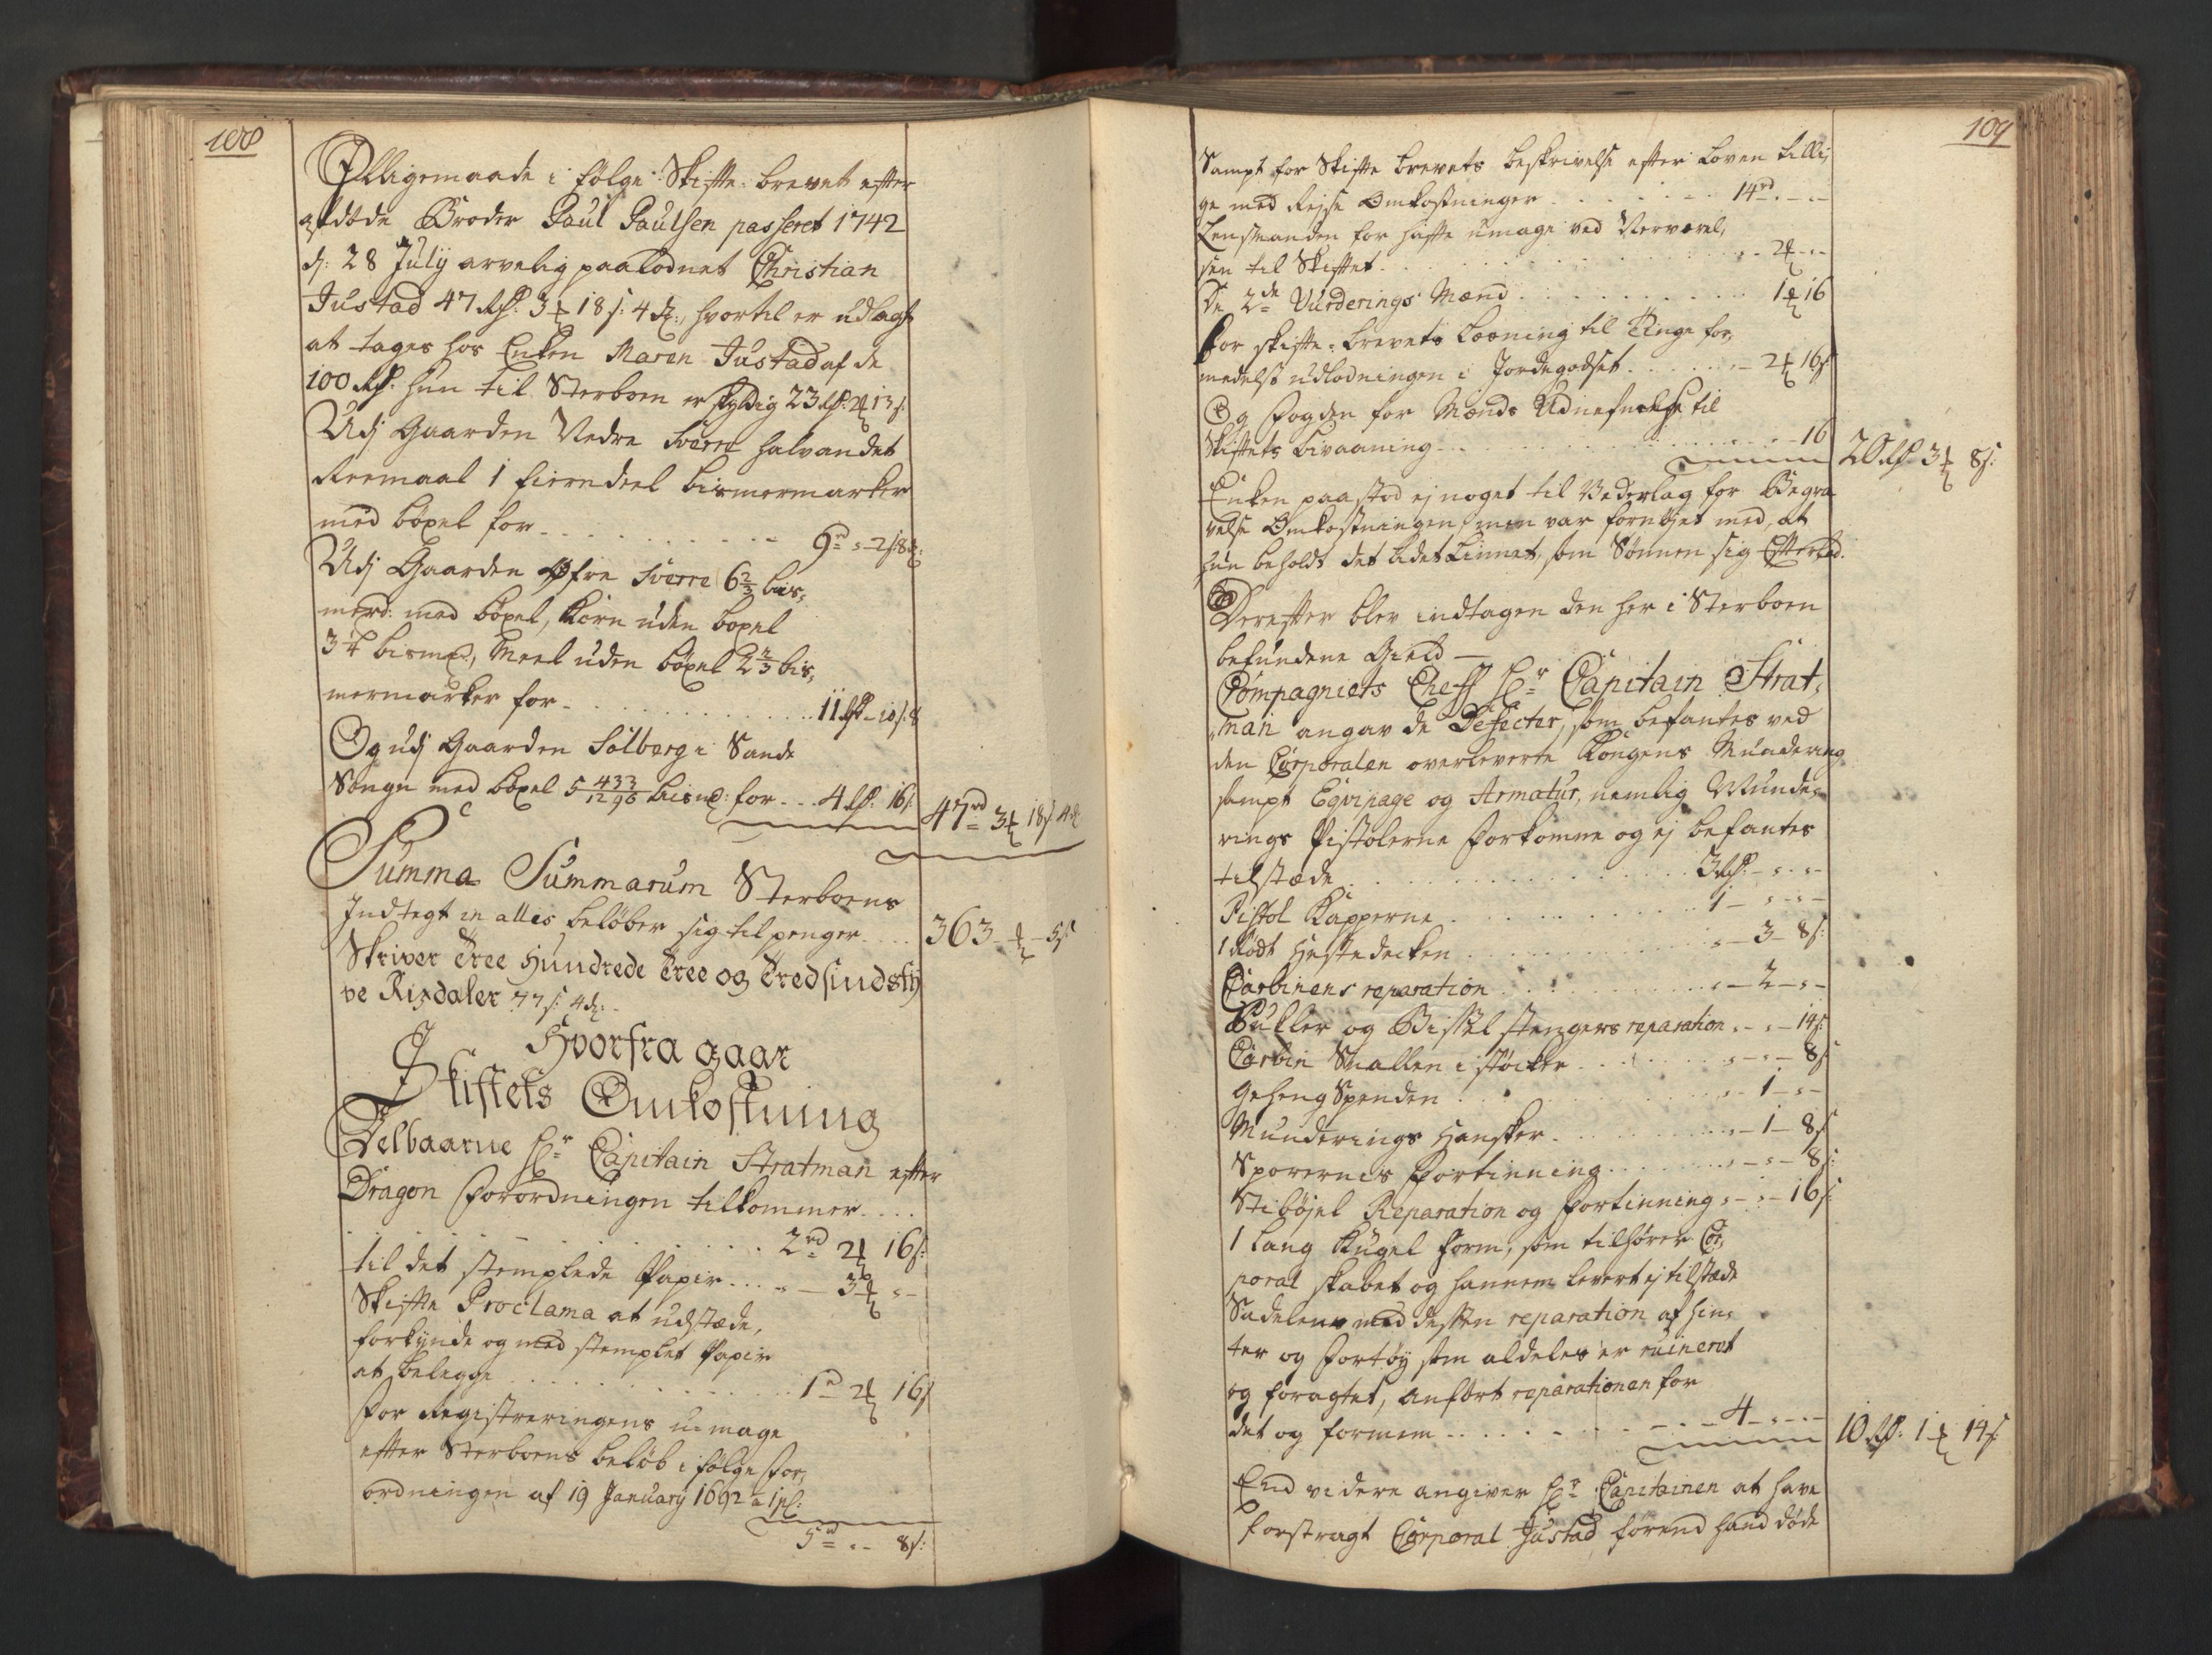 108
Illigemaade i følge Skifte-brevet efter
afdøde Broder Paul Paulsen passeret 1742
d: 28 July arvelig paalodnet Christian
Justad 47 Rd: 3 18 s: 4 d:, hvortil er udlagt
at tages hos Enken Maren Justad af de
100 Rd: hun til Sterboen er skyldig 23 Rd: 2 13 s:
Udj Gaarden Nedre Sverre halvandet
Reemaal 1 fierendeel bismermarker
med böxel for - - - 9 rd - 2 s: 8 d:
Udj Gaarden Øfre Sverre 6 2/3 bis-
merd: med böxel, Korn uden boxel
3 bismd, Meel uden böxel 2 2/3 bis-
mermarker for - - - 11 Rd - 10 s: 8
Og udj Gaarden Solberg i Sande
Songn med böxel 5 433/1296 bismd: for - - 4 Rd: 16 s:
47 rd 3 18 s 4 d
Summa Summarum Sterboens
Indtegt in alles beløber sig til penger - - 363 - - 5 s
Skriver Tree Hundrede Tree og Tredsindsty
ve Rixdaler 77 s: 4 d:
Hvorfra gaar
Skiftets Omkostning
Velbaarne Hr Capitain Stratman efter
Dragon Forordningen tilkommer - - -
- - - 2 rd 2 16 s:
til det stemplede Papir - - - 3 -
Skifte Proclama at udstæde,
forkynde og med stemplet Papir
at belegge - - - 1 rd 2 16 s
For Registreringens umage
efter Sterboens beløb i følge For-
ordningen af 19 January 1692 a 1 pC:
5 rd - - 8 s:
109
Sampt for Skifte brevets beskrivelse efter Loven tilli-
ge med Reise Omkostninger - - - 14 rd - -
Lensmanden for hafte umage ved Nerværel-
sen til Skiftet - - - 2 - -
De 2de Vurderings Mænd - - - 1 16
For skifte-brevets Læsning til Tinge for-
medelst udlodningen i Jordegodset - - - 2 16 s
Og Fogden for Mænds Udnefnelse til
Skiftets bivaaning - - - 16
20 Rd 3 8 s:
Enken paastod ej noget til Vederlag for Begra-
velse Omkostningen, men var fornöjet med, at
hun beholdt det lidet Linnet, som Sønnen sig Efterlod.
Derefter blev indtagen den her i Sterboen
befundene Gield -
Compagniets Cheff Hr Capitain Strat-
man angav de Defecter, som befantes ved
den Corporalen overleverte Kongens Mundering
sampt Eqvipage og Armatur, nemlig Munde-
rings Pistolerne forkomne og ej befantes
tilstæde - - - 3 Rd: - - -
Pistol Kapperne - - - 1 - - -
1 Rödt Hestedecken - - - 3 - 8 s:
Carbinens reparation - - - 2 - -
Buller og Bissel stengers reparation - - 14 s:
Carbin Snallen i støcker - - - 8 s
Geheng Spenden - - - 1 - -
Munderings Handsker - - - 1 - 8 s
Sporernes Fortinning - - - 8 s:
Stibøjel Reparation og Fortinning - - 16 s:
1 Lang Kugel Form, som tilhører Cor-
poral skabet og hannem levert ej tilstæde
Sadelen med desten reparation af hin-
ter og Fortøy som aldeles er ruineret
og foragtet, anført reparationen for
det og formen - - - 4 - - -
10 Rd: 1 14 s
End videre angiver Hr Capitainen at have
forstragt Corporal Justad førend hand døde